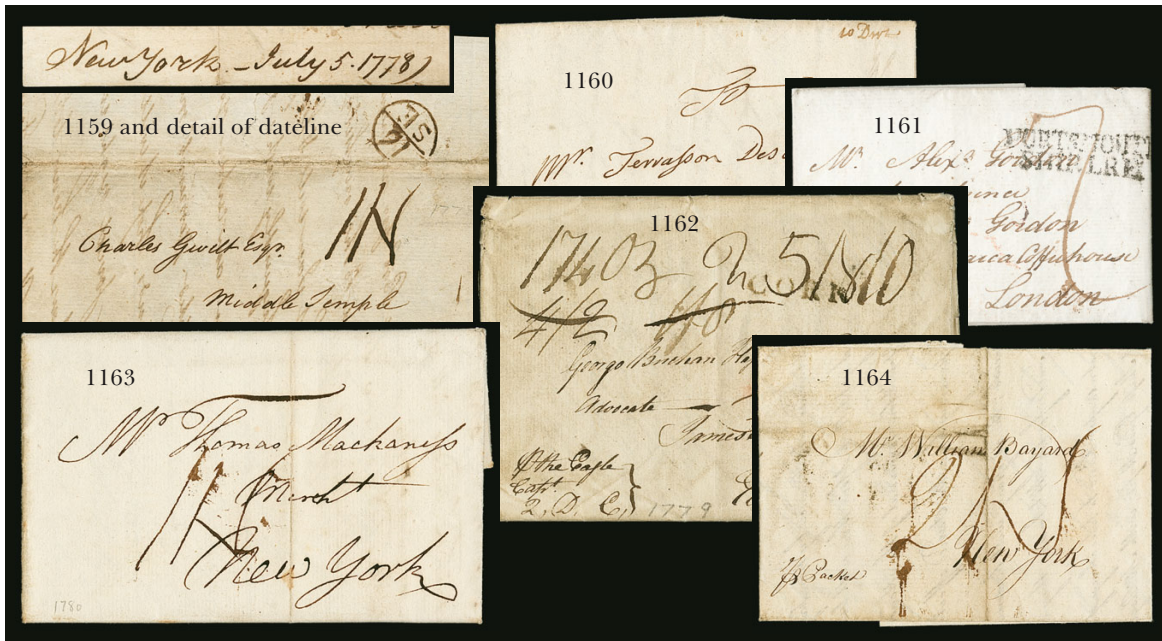 New York - July 5. 1778
1159 and detail of dateline
Charles Gwilt Esqr.
Middle Temple
1160
10 Dwt
To
Mr. Terrasson Des
1161
PORTSMOUTH
SHIP LRE
Mr. Alexr. Gordon
Gordon
aica Coffeehouse
London
1162
George Buchan
Advocate
James
P the Eagle
Capt.
Q. D. C.
1779
1163
Mr Thomas Mackaness
Mercht
New York
1780
1164
Mr. William Bayard
New York
P Packet